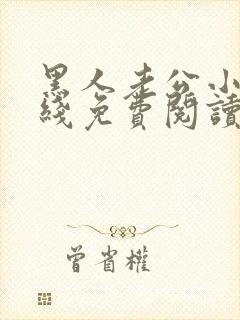 黑人老公小
线免費閱讀
曾省權